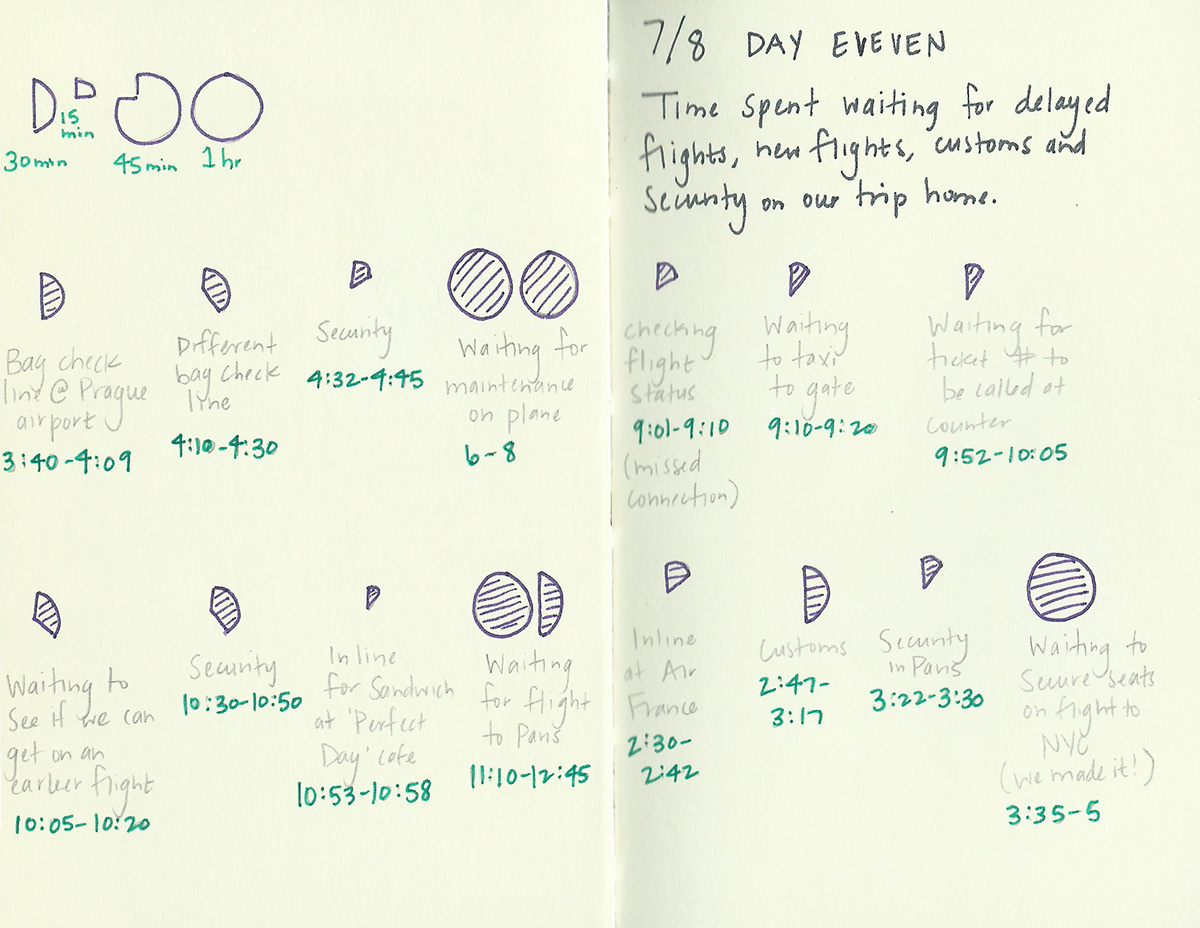 30min
15
min
45min
1hr
7/8 DAY EVEVEN
Time spent waiting for delayed
flights, new flights, customs and
Security on our trip home.
Bag check
line @ Prague
airport
3:40-4:09
Different
bag check
line
4:10-4:30
Security
4:32-4:45
Waiting for
maintenance
on plane
6-8
checking
flight
status
9:01-9:10
(missed
connection)
Waiting
to taxi
to gate
9:10-9:20
Waiting for
ticket # to
be called at
counter
9:52-10:05
Waiting to
see if we can
get on an
earleer flight
10:05-10:20
Security
10:30-10:50
In line
for Sandwich
at 'Perfect
Day' cafe
10:53-10:58
Waiting
for flight
to Paris
11:10-12:45
Inline
at Air
France
2:30-
2:42
Customs
2:47-
3:17
Security
in Paris
3:22-3:30
Waiting to
Secure seats
on flight to
NYC
(we made it!)
3:35-5